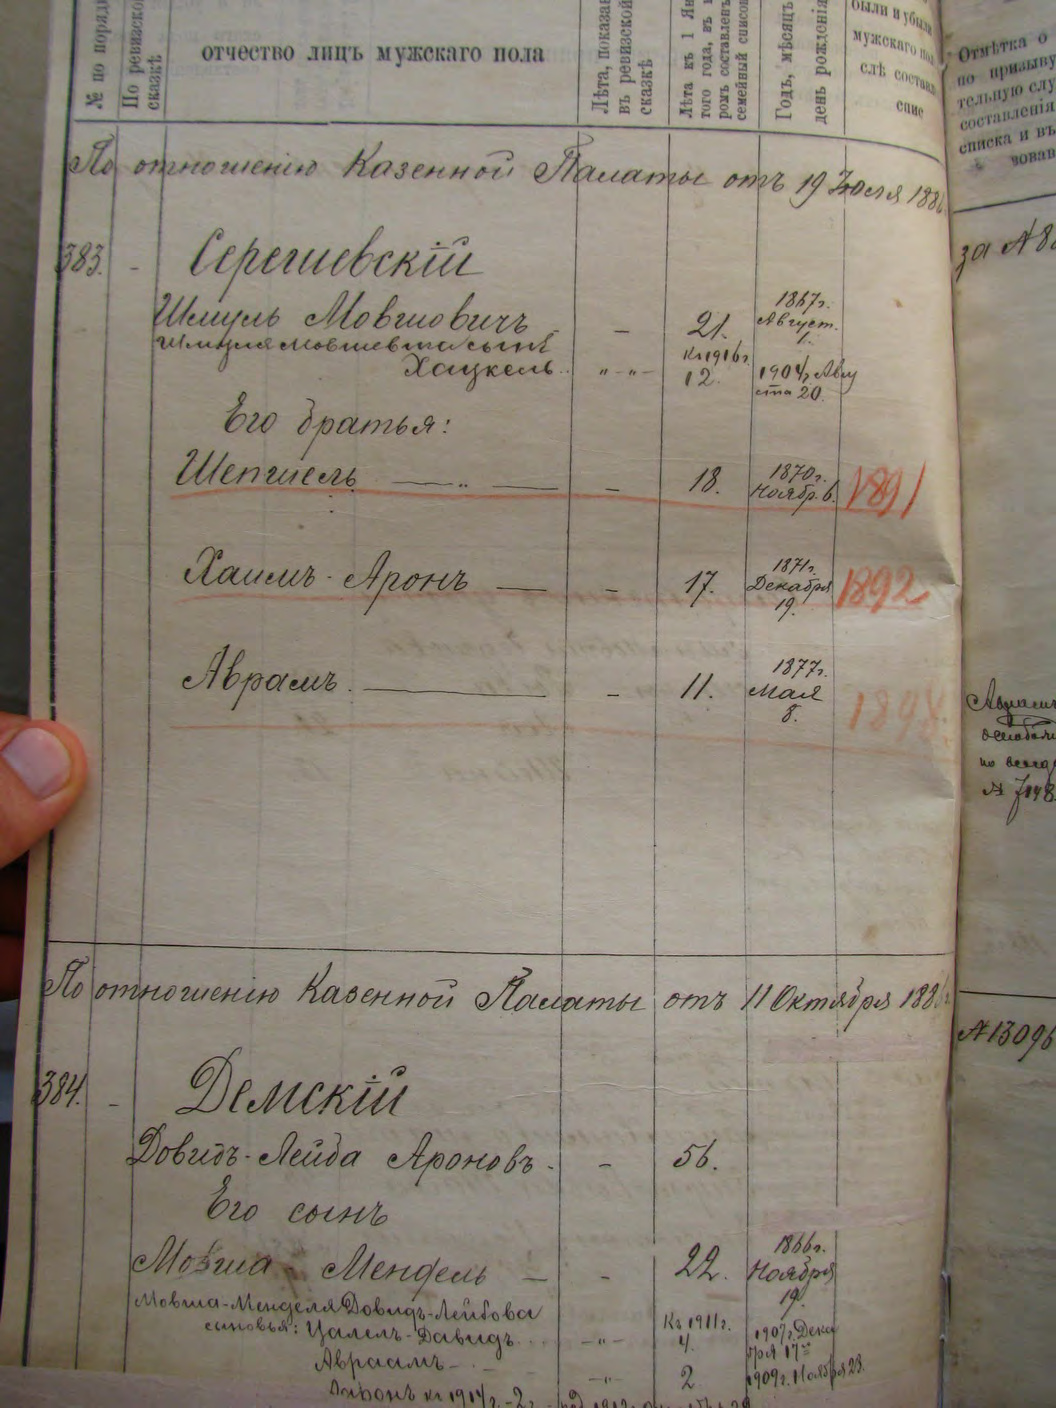 № по порядк
По ревизской сказкѣ
отчество лицъ мужскаго пола
Лѣта, показан въ ревизской сказкѣ
Лѣта къ 1 Ян того года, въ к ромъ составленъ семейный списокъ
Годъ, мѣсяцъ день рожденія
были и убыли
мужскаго пол
слѣ составл
спис
Отмѣтка о
по призыву
тельную слу
составленія
списка и въ
чован
По отношенію Казенной Палаты отъ 19 Іюля 188
383. - Серегиевскій
за № 8
Шмуль Мовшовичъ - - 21. 1867г. Август. 1.
Шмуля Мовшевича сынъ
Хацкель . . " - " - Къ 1916г 12. 1904г Авгу ста 20.
Его братья:
Шепшель — „ — - 18. 1870г. Ноябр. 6. 1891
Хаимъ - Аронъ — - 17. 1871г. Декабря 19. 1892
Аврамъ. — - 11. 1877г. Мая 8. 1898
Аврамъ
по
№ 7148
По отношенію Казенной Палаты отъ 11 Октября 188
№ 13096
384. - Демскій
Довидъ - Лейба Ароновъ - - 56.
Его сынъ
Мовша - Мендель — - 22. 1866г. Ноября 19.
Мовша-Менделя Довидъ-Лейбова
сыновья: Цалель-Давидъ . . . - " - Къ 1911г. 4. 1907г. Дека бря 17
Авраамъ - . - - " - 2 1909г. Ноября 23.
къ 1914г. - 2г.